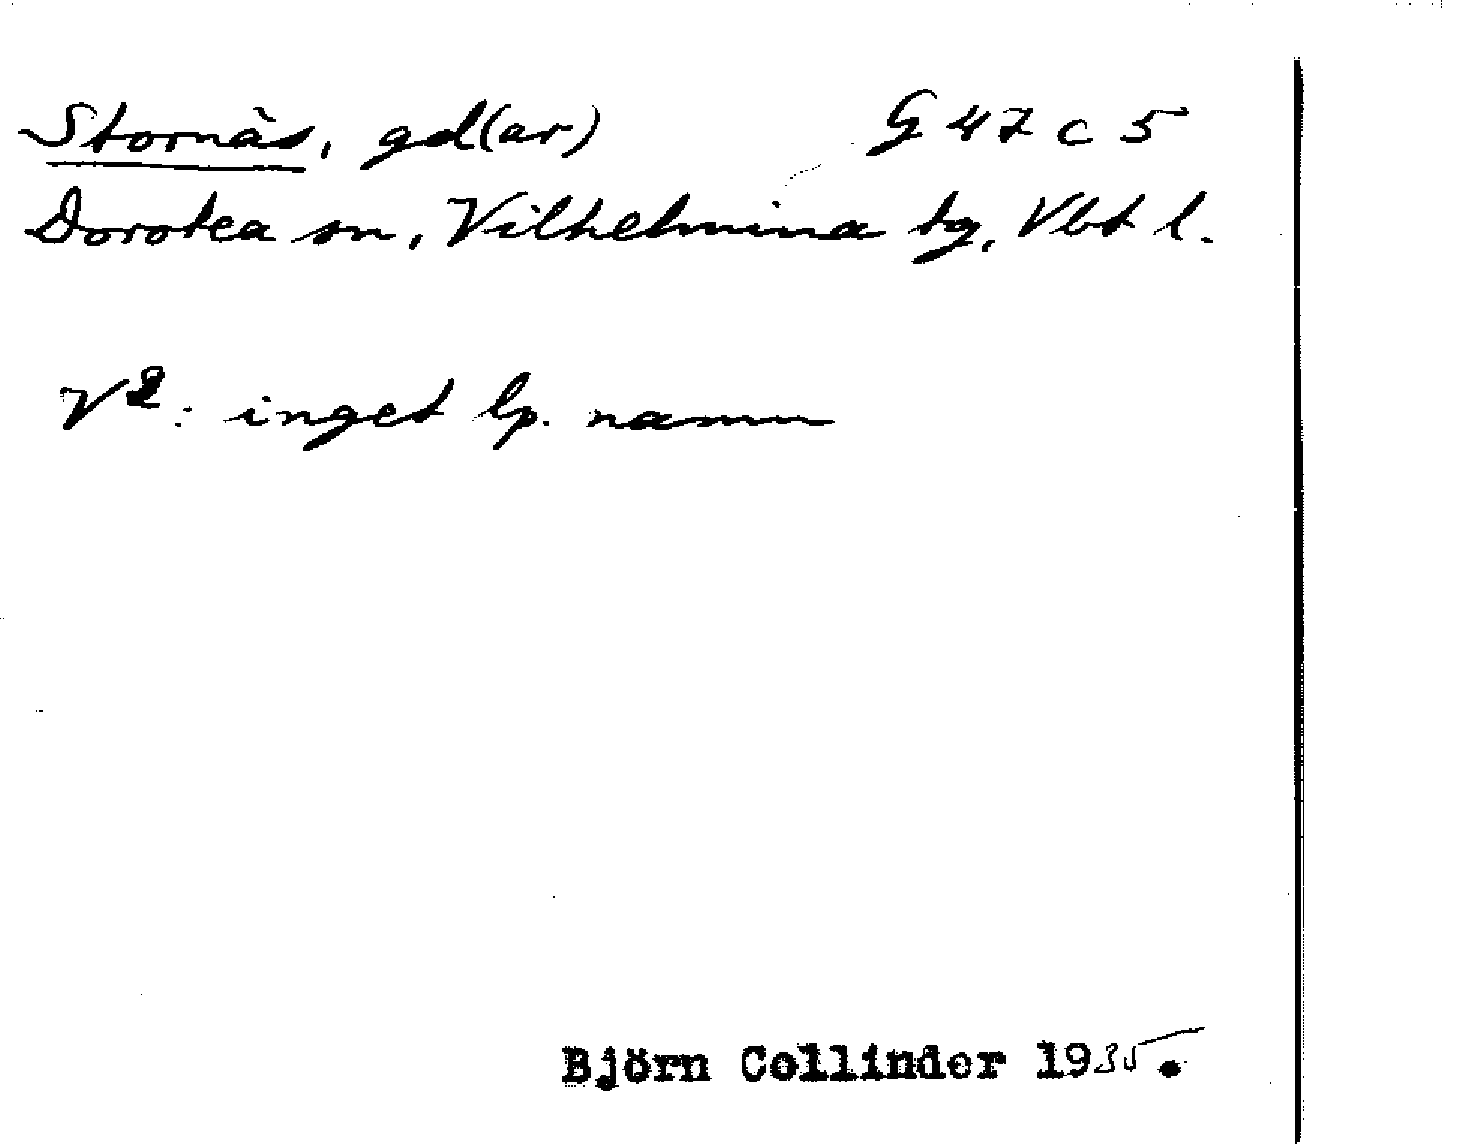 Stornäs, gd(ar) G 47 c 5
Dorotea sn, Vilhelmina tg, Vbt l.
V²: inget lp. namn
Björn Collinder 1935.